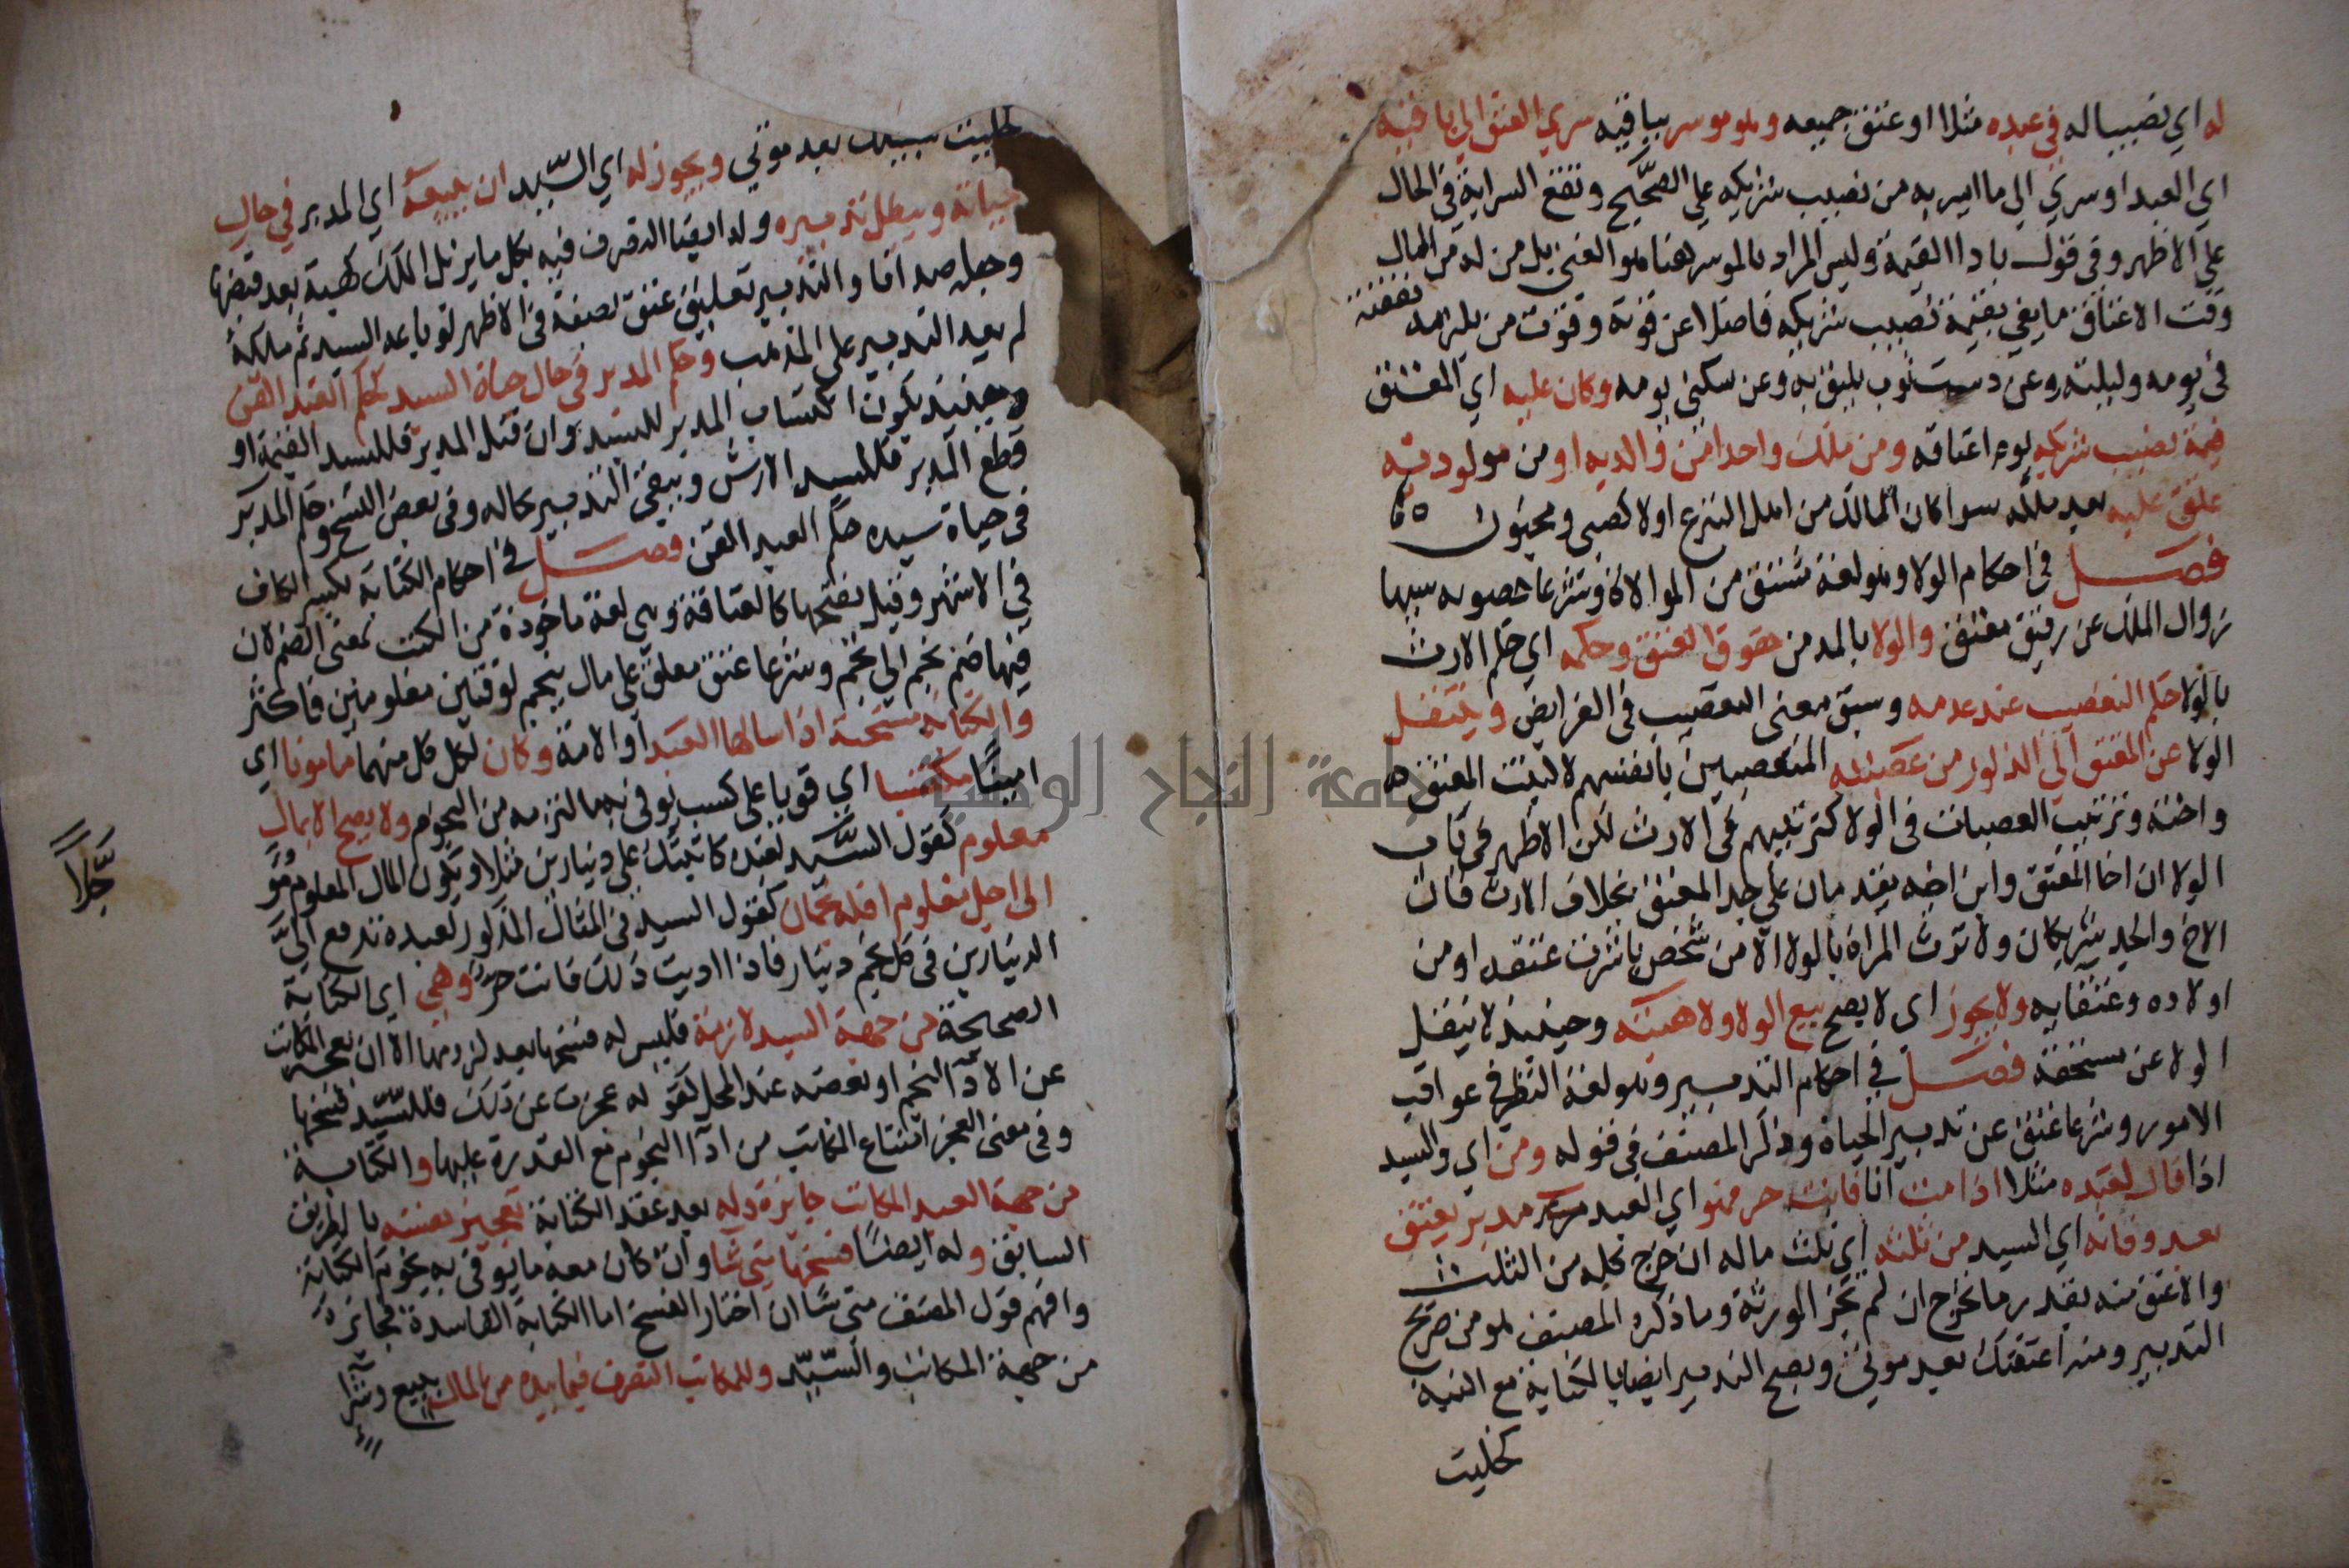 له اي نصيبا له في عبده مثلا او عتق جميعه وهو موسر بباقيه سري العتق الي باقيه
اي العبد او سري الي ما ايسر به من نصيب شريكه علي الصحيح وتقع السراية في الحال
علي الاظهر وفي قول بادا القيمة وليس المراد بالموسر هنا هو الغني بل من له من المال
وقت الاعتاق ما يفي بقيمة نصيب شريكه فاضلا عن قوته وقوت من يلزمه نفقته
في يومه وليلته وعن دست ثوب يليق به وعن سكني يومه وكان عليه اي المعتق
قيمة نصيب شريكه يوم اعتاقه ومن ملك واحدا من والديه او من مولوديه
عتق عليه بعد ملكه سوا كان المالك من اهل التبرع اولا كصبي ومجنون
فصل في احكام الولا وهو لغة مشتق من الموالاة وشرعا عصوبه سببها
زوال الملك عن رقيق معتق والولا بالمد من حقوق العتق وحكمه اي حكم الارث
بالولا حكم التعصيب عند عدمه وسبق معني التعصيب في الفرايض وينتقل
الولا عن المعتق الي الذكور من عصبته المتعصبين بانفسهم لا كبنت المعتق
واخته وترتيب العصبات في الولا كترتيبهم في الارث لكن الاظهر في باب
الولا ان اخا المعتق وابن اخيه يقدمان علي جد المعتق بخلاف الارث فان
الاخ والجد شريكان ولا ترث المراة بالولا الا من شخص باشرت عتقه او من
اولاده وعتقايه ولا يجوز اي لا يصح بيع الولا ولا هبته وحينيذ لا ينتقل
الولا عن مستحقه فصل في احكام التدبير وهو لغة النظر في عواقب
الامور وشرعا عتق عن تدبير الحياة وذكر المصنف في قوله ومن اي والسيد
اذا قال لعبده مثلا اذا مت انا فانت حر فهو اي العبد مدبر يعتق
بعد وفاته اي السيد من ثلثه اي ثلث ماله ان خرج كله من الثلث
والا عتق منه بقدر ما يخرج ان لم تجز الورثة وما ذكره المصنف هو من صريح
التدبير ومنه اعتقتك بعد موتي ويصح التدبير ايضا بالكناية مع النية
كخليت
كخليت سبيلك بعد موتي ويجوز له اي السيد ان يبيعه اي المدبر في حال
حياته ويبطل تدبيره وله ايضا التصرف فيه بكل ما يزيل الملك كهبة بعد قبضها
وجعله صداقا والتدبير تعليق عتق بصفة في الاظهر فلو باعه السيد ثم ملكه
لم يعد التدبير علي المذهب وحكم المدبر في حال حياة السيد كحكم العبد القن
وحينيذ يكون اكتساب المدبر للسيد وان قتل المدبر فللسيد القيمة او
قطع المدبر فللسيد الارش ويبقي التدبير بحاله وفي بعض النسخ وحكم المدبر
في حياة سيده حكم العبد القن فصل في احكام الكتابة بكسر الكاف
في الاشهر وقيل بفتحها كالعتاقة وهي لغة ماخوذة من الكتب بمعني الضم لان
فيها ضم نجم الي نجم وشرعا عتق معلق علي مال ينجم لوقتين معلومين فاكثر
والكتابة مستحبة اذا سالها العبد او الامة وكان لكل كل منهما مامونا اي
امينا مكتسبا اي قويا علي كسب يوفي به ما التزمه من النجوم ولا يصح الا بمال
معلوم كقول السيد لعبده كاتبتك علي دينارين مثلا ويكون المال المعلوم مو
جلا
الي اجل معلوم اقله نجمان كقول السيد في المثال المذكور لعبده تدفع الي
الدينارين في كل نجم دينار فاذا اديت ذلك فانت حر وهي اي الكتابة
الصحيحة من جهة السيد لازمة فليس له فسخها بعد لزومها الا ان يعجز المكاتب
عن الادا النجم او بعضه عند المحل كقوله عجزت عن ذلك فللسيد فسخها
وفي معني العجز امتناع المكاتب من ادا النجوم مع القدرة عليها والكتابة
من جهة العبد المكاتب جايزة وله بعد عقد الكتابة تعجيز نفسه بالطريق
السابق وله ايضا فسخها متي شا وان كان معه ما يوفي به نجوم الكتابة
وافهم قول المصنف متي شا ان اختار الفسخ اما الكتابة الفاسدة فجايزة
من جهة المكاتب والسيد وللمكاتب التصرف فيما بيده من المال ببيع وشرا
جامعة النجاح الوطنية